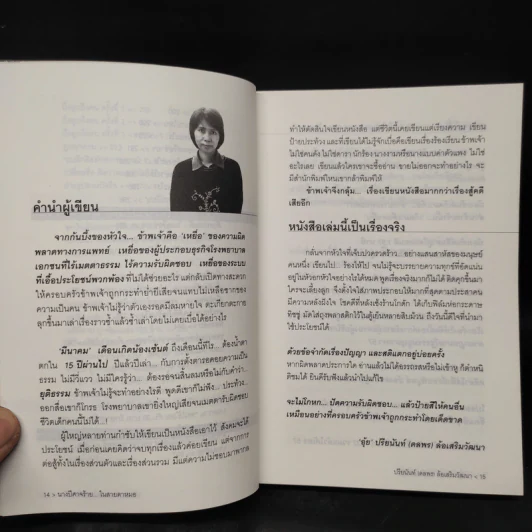 คำนำผู้เขียน
จากก้นบึ้งของหัวใจ... ข้าพเจ้าคือ ‘เหยื่อ’ ของความผิด
พลาดทางการแพทย์ เหยื่อของผู้ประกอบธุรกิจโรงพยาบาล
เอกชนที่ไร้เมตตาธรรม ไร้ความรับผิดชอบ เหยื่อของระบบ
ที่เอื้อประโยชน์พวกพ้อง ที่ไม่ได้ช่วยอะไร แต่กลับเปิดทางสะดวก
ให้ครอบครัวข้าพเจ้าถูกกระทำย่ำยีเสียจนแทบไม่เหลือซากของ
ความเป็นคน ข้าพเจ้าไม่รู้ว่าตัวเองรอดมีลมหายใจ
ลุกขึ้นมาเล่าเรื่องราวซ้ำแล้วซ้ำเล่าโดยไม่เคยเบื่อได้อย่างไร
‘มีนาคม’ เดือนเกิดน้องเซ้นต์ ถึงเดือนนี้ทีไร... ต้องน้ำตา
ตกใน 15 ปีผ่านไป ปีแล้วปีเล่า... กับการตั้งตารอคอยความเป็น
ธรรม ไม่มีวี่แวว ไม่มีใครรู้ว่า... ต้องรอจนสิ้นลมหรือไม่กับคำว่า
ยุติธรรม ข้าพเจ้าไม่รู้จะทำอย่างไรดี พูดดีเขาก็ไม่ฟัง... ประท้วง...
ออกสื่อเขาก็โกรธ โรงพยาบาลเขายิ่งใหญ่เสียจนเมตตารับผิดชอบ
ชีวิตเด็กคนนี้ไม่ได้...!
ผู้ใหญ่หลายท่านกำชับให้เขียนเป็นหนังสือเอาไว้ สังคมจะได้
ประโยชน์ เมื่อก่อนเคยคิดว่าจบทุกเรื่องแล้วค่อยเขียน แต่จาก
ต่อสู้ทั้งในเรื่องส่วนตัวและเรื่องส่วนรวม มีแต่ความไม่ชอบมาพากล
14 > นางปีศาจร้าย... ในสายตาหมอ
ทำให้ตัดสินใจเขียนหนังสือ แต่ชีวิตนี้เคยเขียนแต่เรียงความ เขียน
ป้ายประท้วง และที่เขียนได้ไม่รู้จักเบื่อคือเขียนเรื่องร้องเรียน ข้าพเจ้า
ไม่ใช่คนดัง ไม่ใช่ดารา นักร้อง นางงามหรือนางแบบค่าตัวแพง ไม่ใช่
อะไรเลย เขียนแล้วใครเขาจะซื้ออ่าน ขายไม่ออกจะทำอย่างไร จะ
มีสำนักพิมพ์ไหนเขากล้าพิมพ์ให้
ข้าพเจ้าจึงกลุ้ม... เรื่องเขียนหนังสือมากกว่าเรื่องสู้คดี
เสียอีก
หนังสือเล่มนี้เป็นเรื่องจริง
กลั่นจากหัวใจที่เจ็บปวดรวดร้าว อย่างแสนสาหัสของมนุษย์
คนหนึ่ง เขียนไป ร้องไห้ไป จนไม่รู้จะบรรยายความทุกข์ที่อัดแน่น
อยู่ในหัวอกหัวใจได้อย่างไรให้หมด พูดเรื่องความทุกข์คงไม่ดี ติดคุกขึ้นมา
ใครจะเลี้ยงลูก จึงตั้งใจใส่ภาพประกอบให้มากที่สุดตามประสาคน
มีความหลังฝังใจ โชคดีที่หลังเซ้งร้านโกดัก ได้เก็บฟิล์มห่อกระดาษ
ทิชชู่ มัดใส่ถุงพลาสติกไว้ในตู้เย็นหลายสิบม้วน ถึงวันนี้ดีใจที่นำมา
ใช้ประโยชน์ได้
ด้วยข้อจำกัดเรื่องปัญญา และสติแตกอยู่บ่อยครั้ง
หากผิดพลาดประการใด อ่านแล้วไม่ได้อรรถรสหรือไม่เข้าหู ก็ตำหนิ
ติชมได้ ยินดีรับฟังแล้วนำไปแก้ไข
จะไม่โกหก... ปัดความรับผิดชอบ... แล้วป้ายสีให้คนอื่น
เหมือนอย่างที่ครอบครัวข้าพเจ้าถูกกระทำโดยเด็ดขาด
‘อุ้ย’ ปรียนันท์ (ดลพร) ล้อเสริมวัฒนา
ปรียนันท์ (ดลพร) ล้อเสริมวัฒนา < 15